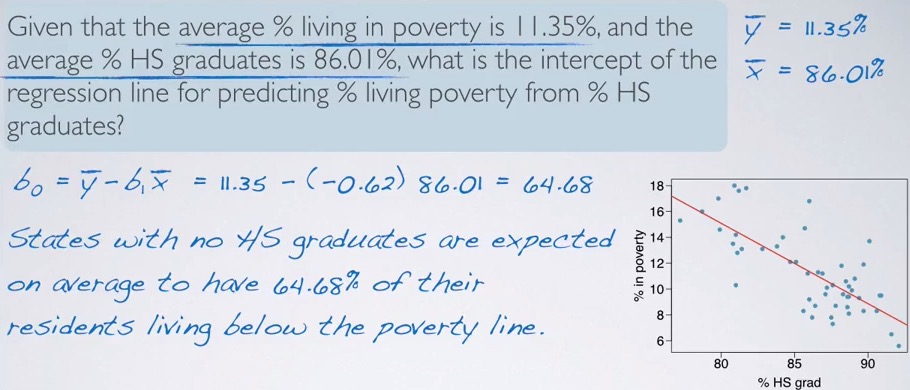 Given that the average % living in poverty is 11.35%, and the
average % HS graduates is 86.01%, what is the intercept of the
regression line for predicting % living poverty from % HS
graduates?
ȳ = 11.35%
x̄ = 86.01%
b₀ = ȳ - b₁x̄ = 11.35 - (-0.62) 86.01 = 64.68
States with no HS graduates are expected
on average to have 64.68% of their
residents living below the poverty line.
% in poverty
18
16
14
12
10
8
6
80 85 90
% HS grad